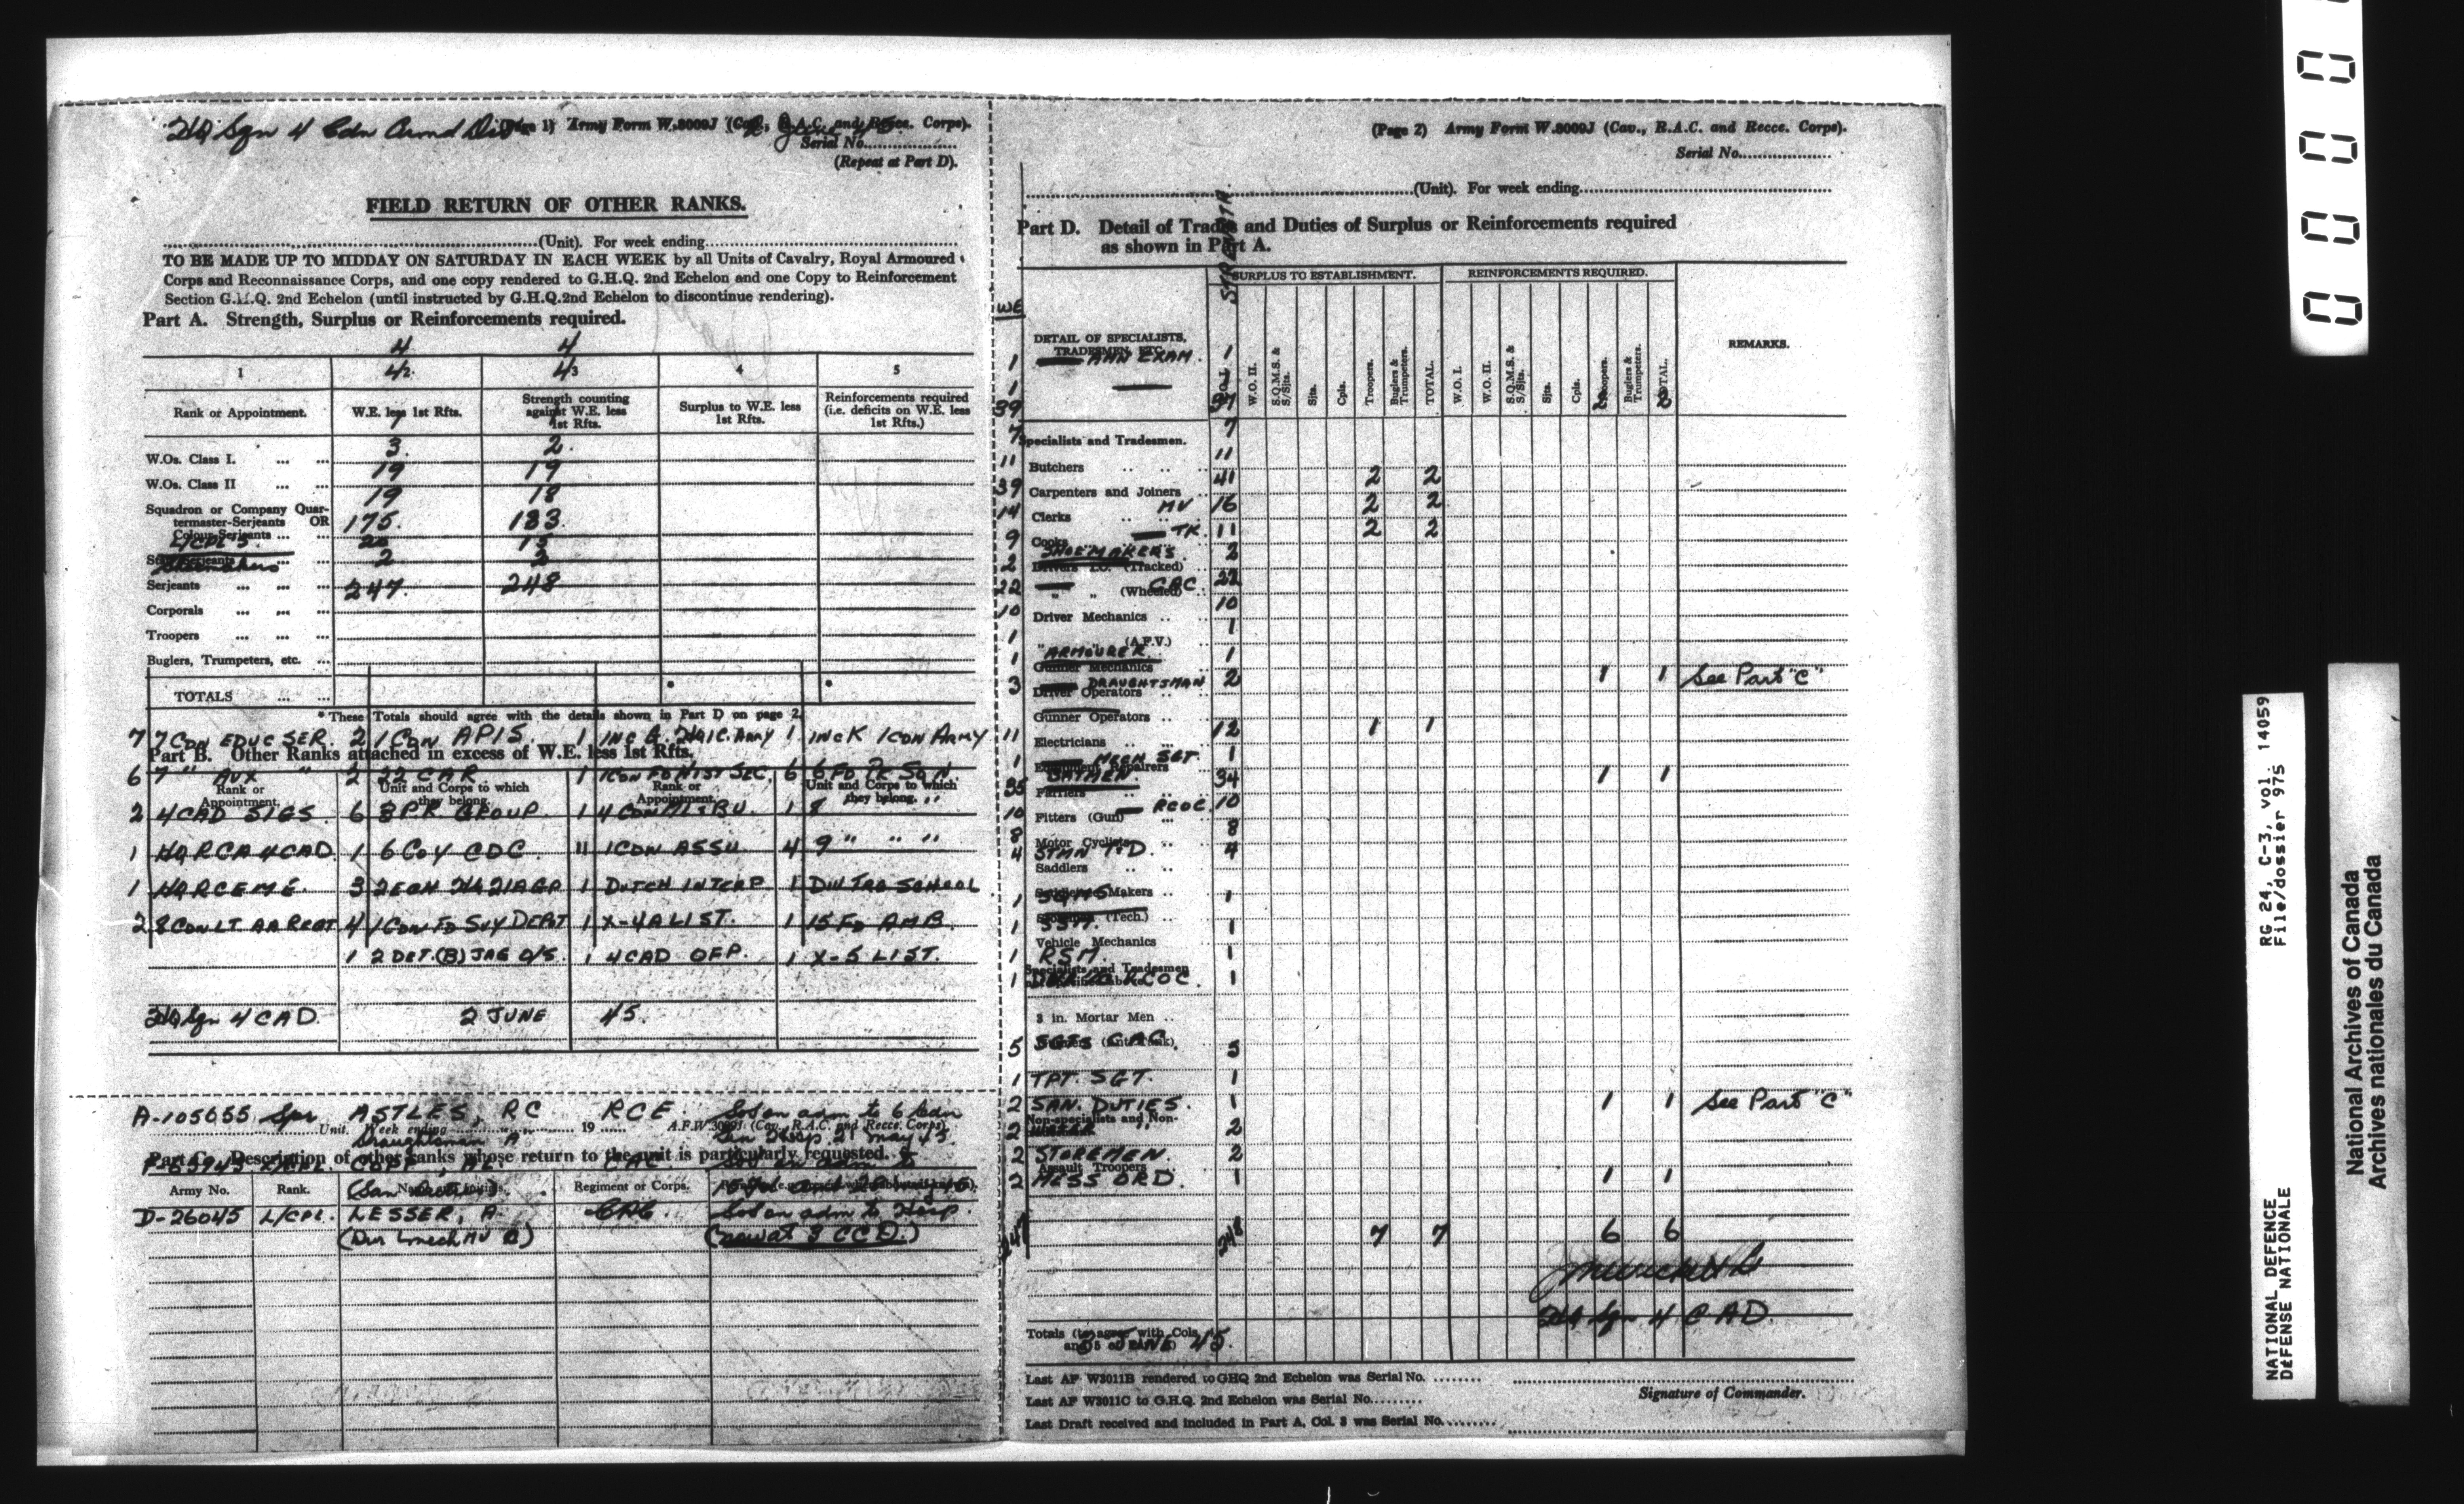 HQ Sqn 4 Cdn Armd Div
(Page 1) Army Form W.3009J (Cav., R.A.C. and Recce. Corps).
Serial No.
(Repeat at Part D).
FIELD RETURN OF OTHER RANKS.
(Unit). For week ending
TO BE MADE UP TO MIDDAY ON SATURDAY IN EACH WEEK by all Units of Cavalry, Royal Armoured
Corps and Reconnaissance Corps, and one copy rendered to G.H.Q. 2nd Echelon and one Copy to Reinforcement
Section G.H.Q. 2nd Echelon (until instructed by G.H.Q.2nd Echelon to discontinue rendering).
Part A. Strength, Surplus or Reinforcements required.
4 4
1 2 3 4 5
4 4
Rank or Appointment. W.E. less 1st Rfts. Strength counting against W.E. less 1st Rfts. Surplus to W.E. less 1st Rfts. Reinforcements required (i.e. deficits on W.E. less 1st Rfts.)
3 2
W.Os. Class I.
19 19
W.Os. Class II
19 18
Squadron or Company Quar-
termaster-Serjeants OR 175 183
Colour-Serjeants
L/CPLS 20 15
Staff-Serjeants 2 2
Shoemakers
Serjeants 247 248
Corporals
Troopers
Buglers, Trumpeters, etc.
TOTALS
* These Totals should agree with the details shown in Part D on page 2.
7 7 CDN EDUC SER. 2 1 CDN APIS. 1 1 INCK 1 CDN ARMY
Part B. Other Ranks attached in excess of W.E. less 1st Rfts.
6 7 " AUX " 2 22 CAR 1 1 CDN FD HIST SEC. 6 6 FD PK SQN.
Rank or Appointment. Unit and Corps to which they belong. Rank or Appointment. Unit and Corps to which they belong.
2 4 CAD SIGS 6 3 P.R. GROUP. 1 1 8 " "
1 HQ RCA 4 CAD 1 6 COY CDC. 11 1 CDN ASSU 4 9 " " "
1 HQ RCEME. 3 2 ECN HQ 21 AGP 1 DUTCH INTERP 1 DIV TRG SCHOOL
2 8 CDN LT AA REGT 4 1 CDN FD SVY DEPT 1 X-4A LIST. 1 15 FD AMB.
1 2 DET.(B) JAG O/S. 1 4 CAD OFP. 1 X-5 LIST.
HQ Sqn 4 CAD. 2 JUNE 45.
A-105055 Spr ASTLES, RC RCE. Sos on adm to 6 Cdn
Unit. Week ending 19 A.F.W.3009J (Cav., R.A.C. and Recce. Corps)
Draughtsman A Gen Hosp 21 May 45.
Part C. Description of other ranks whose return to the unit is particularly requested.
CAC.
Army No. Rank. Name and Initials. Regiment or Corps.
D-26045 L/CPL LESSER, A. CAC. Sos on adm to Hosp.
(Dvr Mech MV C) (now at 3 CCD.)
(Page 2) Army Form W.3009J (Cav., R.A.C. and Recce. Corps).
Serial No.
(Unit). For week ending
Part D. Detail of Trades and Duties of Surplus or Reinforcements required
as shown in Part A.
STRENGTH.
WE
SURPLUS TO ESTABLISHMENT. REINFORCEMENTS REQUIRED.
DETAIL OF SPECIALISTS, TRADESMEN, ETC.
W.O. I. W.O. II. S.Q.M.S. & S/Sjts. Sjts. Cpls. Troopers. Buglers & Trumpeters. TOTAL. W.O. I. W.O. II. S.Q.M.S. & S/Sjts. Sjts. Cpls. Troopers. Buglers & Trumpeters. TOTAL. REMARKS.
1 AMN EXAM. 1
1
39 37 2 2
7 Specialists and Tradesmen. 7
11 Butchers 11
39 Carpenters and Joiners 41 2 2
14 Clerks MV 16 2 2
9 Cooks TK 11 2 2
2 SHOEMAKERS 2
Drivers I.C. (Tracked)
22 " " (Wheeled) CAC 22
10 Driver Mechanics 10
1 " " (A.F.V.) 1
1 ARMOURER 1
Gunner Mechanics
3 DRAUGHTSMAN 2 1 1 See Part "C"
Driver Operators
Gunner Operators
11 Electricians 12 1 1
1 1
Equipment Repairers
35 BATMEN 34 1 1
Farriers
10 Fitters (Gun) RCOC. 10
8 Motor Cyclists 8
4 4
Saddlers
1 SQMS 1
1 SSM. 1
Vehicle Mechanics
1 RSM. 1
Specialists and Tradesmen
1 RCOC 1
3 in. Mortar Men
5 SGTS CAC. 5
1 TPT. SGT. 1
2 SAN. DUTIES. 1 1 1 See Part "C"
Non-specialists and Non-
2 WATER 2
2 STOREMEN. 2
Assault Troopers
2 MESS ORD. 1 1 1
247 248 7 7 6 6
HQ Sqn 4 CAD
Totals (to agree with Cols. 4
and 5 of Part A) JUNE 45.
Last AF W3011B rendered to GHQ 2nd Echelon was Serial No.
Last AF W3011C to G.H.Q. 2nd Echelon was Serial No.
Signature of Commander.
Last Draft received and included in Part A, Col. 3 was Serial No.
0 0 0 0
NATIONAL DEFENCE RG 24, C-3, vol. 14059
DÉFENSE NATIONALE File/dossier 975
National Archives of Canada
Archives nationales du Canada